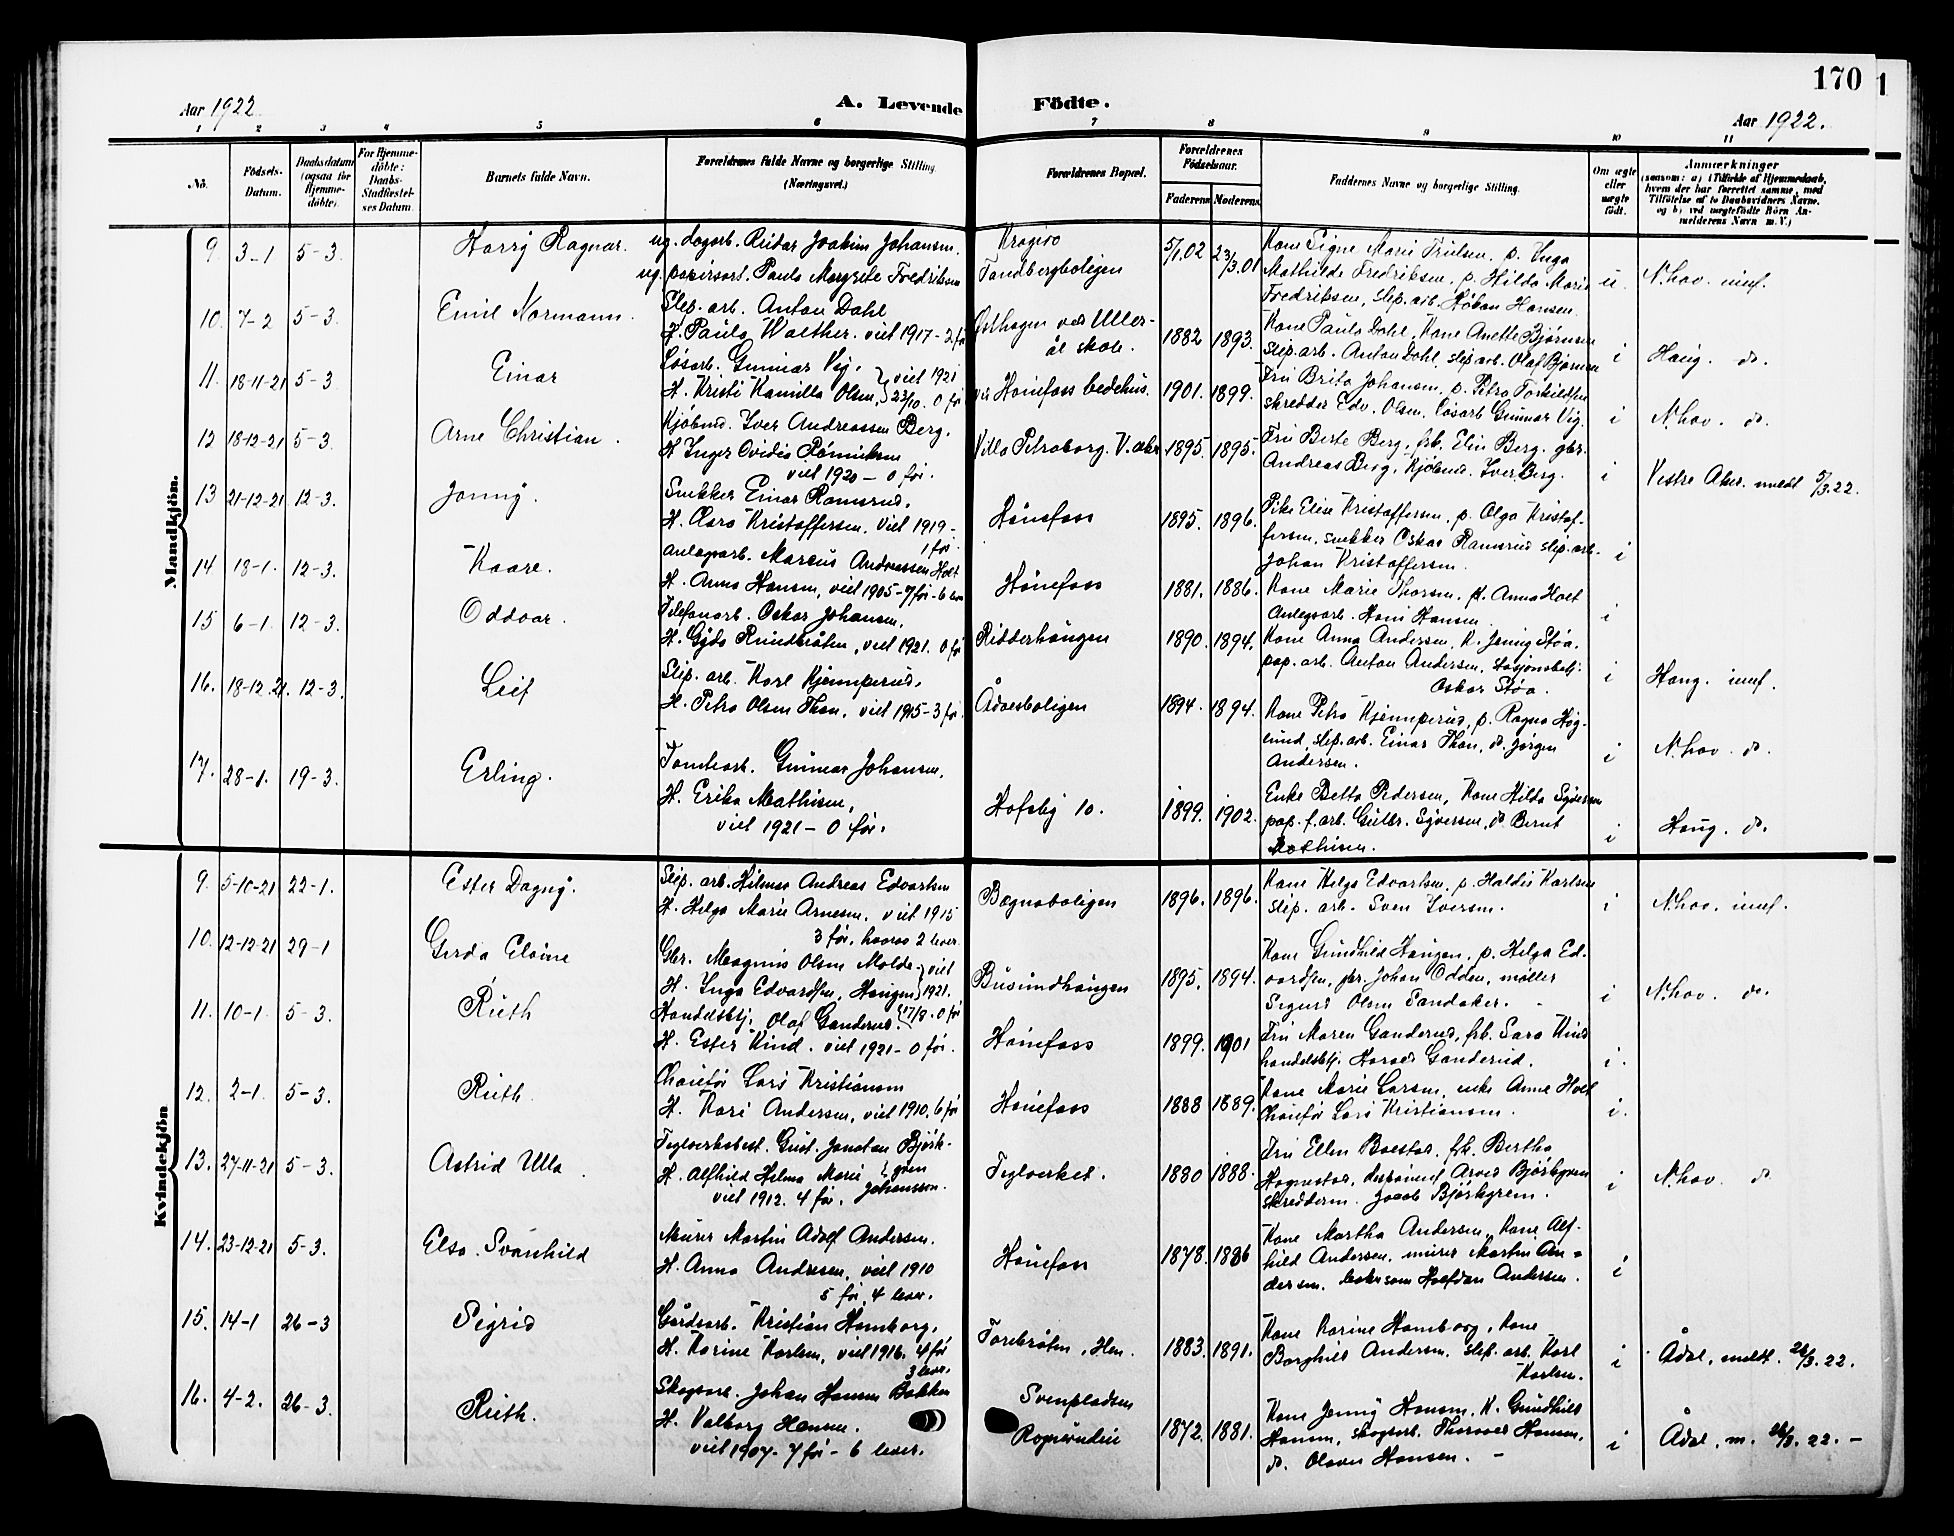 170
Aar 1922.
A. Levende Födte.
Aar 1922.
1 2 3 4 5 6 7 8 9 10 11
No.
Födsels-
Datum.
Daabsdatum
(ogsaa for
Hjemme-
döbte).
For Hjemme-
döbte:
Daabs-
Stadfæstel-
ses Datum.
Barnets fulde Navn.
Forældrenes fulde Navne og borgerlige Stilling.
(Næringsvei.)
Forældrenes Bopæl.
Forældrenes
Födselsaar.
Faderens Moderens
Faddernes Navne og borgerlige Stilling.
Om ægte
eller
uægte
født.
Anmærkninger
(saasom: a) i Tilfælde af Hjemmedaab,
hvem der har forrettet samme, med
Tilföielse af to Daabsvidners Navne,
og b) ved uægtefödte Börn An-
melderens Navn m. V.)
Mandkjön.
9 3-1 5-3. Harry Ragnar. ug. dagarb. Reidar Joakim Johansen.
ug. papirarb. Paula Margrete Fredriksen
Tandbergboligen 5/1.02 23/3.01
Kone Signe Marie Trulsen, p. Inga
Mathilde Fredriksen, p. Hilda Marie
Fredriksen, slip. arb. Håkon Hansen.
u. N.hov. innf.
10. 7-2 5-3. Emil Normann. Slip. arb. Anton Dahl
H. Paula Walther. viet 1917 - 2 før
Østhagen ved Uller-
ål skole. 1882 1893.
Kone Paula Dahl, Kone Anette Bjørnsen
slip. arb. Anton Dahl, slip. arb. Olaf Bjørnsen
i Haug. do.
11. 18-11-21 5-3. Einar Løsarb. Gunnar Vig,
H. Kristi Kamilla Olsen, viet 1921 23/10. 0 før
ved Hønefoss bedehus. 1901. 1899.
Fru Brita Johansen, p. Petra Torkildsen
skredder Edv. Olsen, løsarb Gunnar Vig.
i N.hov. do.
12 18-12-21 5-3. Arne Christian. Kjøbmd. Iver Andreassen Berg.
H. Inger Ovidia
viet 1920 - 0 før.
Villa Petraborg. V. aker 1895. 1895.
Fru Berte Berg, frk. Elin Berg. gbr.
Andreas Berg, Kjøbmd. Iver Berg.
i Vestre Aker. meldt 5/3.22.
13 21-12-21 12-3. Jonny. Snekker Einar Ramsrud,
H. Clara Kristoffersen. Viet 1919 -
1 før.
Hønefoss 1895. 1896.
Pike Elise Kristoffersen, p. Olga Kristof-
fersen, snekker Oskar Ramsrud slip. arb.
Johan Kristoffersen.
i
14 18-1. 12-3. Kaare. Anlægsarb. Marcus Andreassen Hoet
H. Anna Hansen, viet 1905 - 7 før - 6 lever
Hønefoss 1881. 1886.
Kone Marie Thorsen, p. Anna Hoet
Anlegsarb. Hans Hansen.
i
15 6-1. 12-3. Oddvar. Telefonarb. Oskar Johansen,
H. Gyda Rundbråten, viet 1921. 0 før
Ridderhaugen 1890. 1894.
Kone Anna Andersen, K. Jenny Støa.
pap. arb. Anton Andersen, stasjonsbetj.
Oskar Støa.
i Haug. innf.
16. 18-12.21. 12-3. Leif Slip. arb. Karl Kjemperud,
H. Petra Olsen Than, viet 1915 - 3 før.
Ådalsboligen 1894. 1894.
Kone Petra Kjemperud, p. Ragna Høg-
lund, slip. arb. Einar Than, do. Jørgen
Andersen.
i N.hov. do.
17. 28-1. 19-3. Erling. Tomtearb. Gunnar Johansen,
H. Erika Mathisen,
viet 1921 - 0 før.
Hofsby 10. 1899. 1902.
Enke Betta Pedersen, Kone Hilda Syversen
pap. f. arb. Gulbr. Syversen, do. Bernt
Mathisen.
i Haug. do.
Kvindekjön
9. 5-10-21 22-1. Ester Dagny. Slip. arb. Hilmar Andreas Edvartsen
H. Helga Marie Arnesen, viet 1915
3 før, hvorav 2 lever.
Bægnaboligen 1896. 1896.
Kone Helga Edvartsen, p. Haldis Karlsen
slip. arb. Sven Iversen.
i N.hov. innf.
10. 12-12-21 29-1 Gerda Elvine Gbr. Magnus Olsen Molde
H. Inga Edvardsen, Haugen viet 1921. 17/8. 0 før
Busundhaugen 1895. 1894.
Kone Gundhild Haugen, p. Helga Ed-
vardsen, gbr. Johan Odden, møller
Sigurd Olsen Sandaker.
i N.hov. do.
11. 10-1. 5-3. Ruth Handelsbtj. Olaf Ganderud
H. Ester Kind. viet 1921 - 0 før.
Hønefoss 1899. 1901
Fru Maren Ganderud, frk. Sara Kind
handelsbtj. Harald Ganderud.
i.
12. 2-1. 5-3. Ruth. Chauffør Lars Kristiansen
H. Kari Andersen, viet 1910, 6 før
Hønefoss 1888 1889.
Kone Marie Larsen, enke Anne Hoel
Chauffør Lars Kristiansen.
i.
13. 27-11-21 5-3. Astrid Ulla. Teglverksbest. Gust. Jonatan Björk-
gren
H. Alfhild Helma Marie Johansson.
viet 1912. 4 før,
Teglverket. 1880 1888.
Fru Ellen Bolstad, frk. Bertha
Hognestad, disponent Arvid Björkgren
skrædderm. Jacob Björkgren.
i N.hov. do.
14. 23-12-21 5-3. Elsa Svanhild Murer Martin Adolf Andersen.
H. Anna Andresen, viet 1910
5 før, 4 lever.
Hønefoss 1878. 1886
Kone Martha Andersen, Kone Alf-
hild Andersen, murer Martin An-
dersen, Halfdan Andersen.
i
15. 14-1 26-3 Sigrid Gårdsarb. Kristian Homborg,
H. Karine Karlsen, viet 1916. 4 før
3 lever.
Torebråten, Hen. 1883. 1891.
Kone Karine Homborg, Kone
Borghild Andersen, slip. arb. Karl
Karlsen.
i Ådal, meldt. 26/3.22.
16. 4-2. 26-3. Ruth. Skogsarb. Johan Hansen Bakken
H. Valborg Hansen.
viet 1907 - 7 før - 6 lever.
Svenpladsen
1872. 1881.
Kone Jenny Hansen, K. Gundhild
Hansen, skogsarb. Thorvald Hansen,
do. Olaves Hansen. -
i Ådal, m. 26/3.22. -